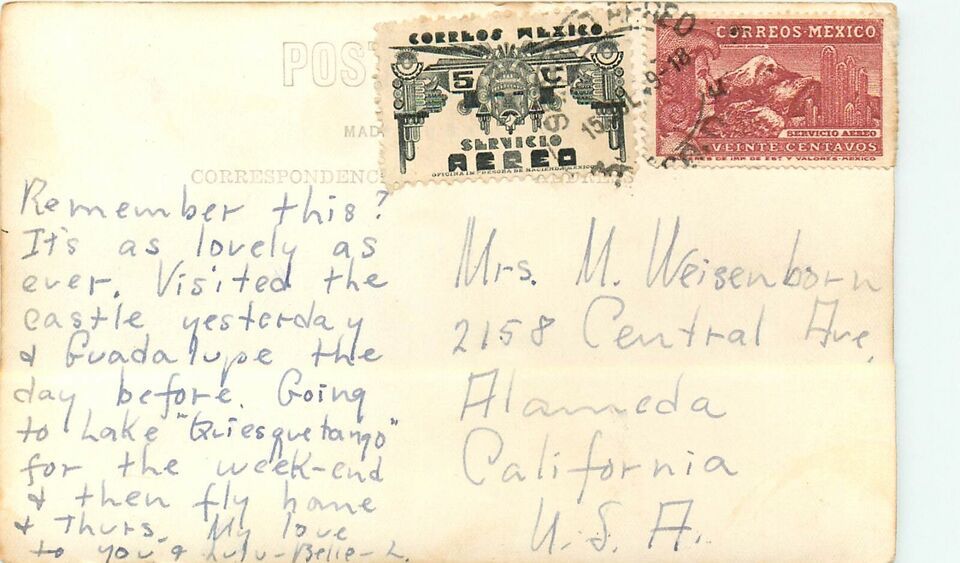 POST
MAD
CORRESPONDENC
CORREOS MEXICO
5 C
SERVICIO
AEREO
OFICINA IMPRESORA DE HACIENDA-MEXICO
CORREOS·MEXICO
SERVICIO AEREO
VEINTE CENTAVOS
RES DE IMP. DE EST. Y VALORES-MEXICO
AEREO
15
9-18
Remember this?
It's as lovely as
ever. Visited the
castle yesterday
& Guadalupe the
day before. Going
to Lake "Quiesquetango"
for the week-end
& then fly home
& Thurs. My love
to you & Lulu-Belle-L.
Mrs. M. Weisenborn
2158 Central Ave.
Alameda
California
U.S.A.